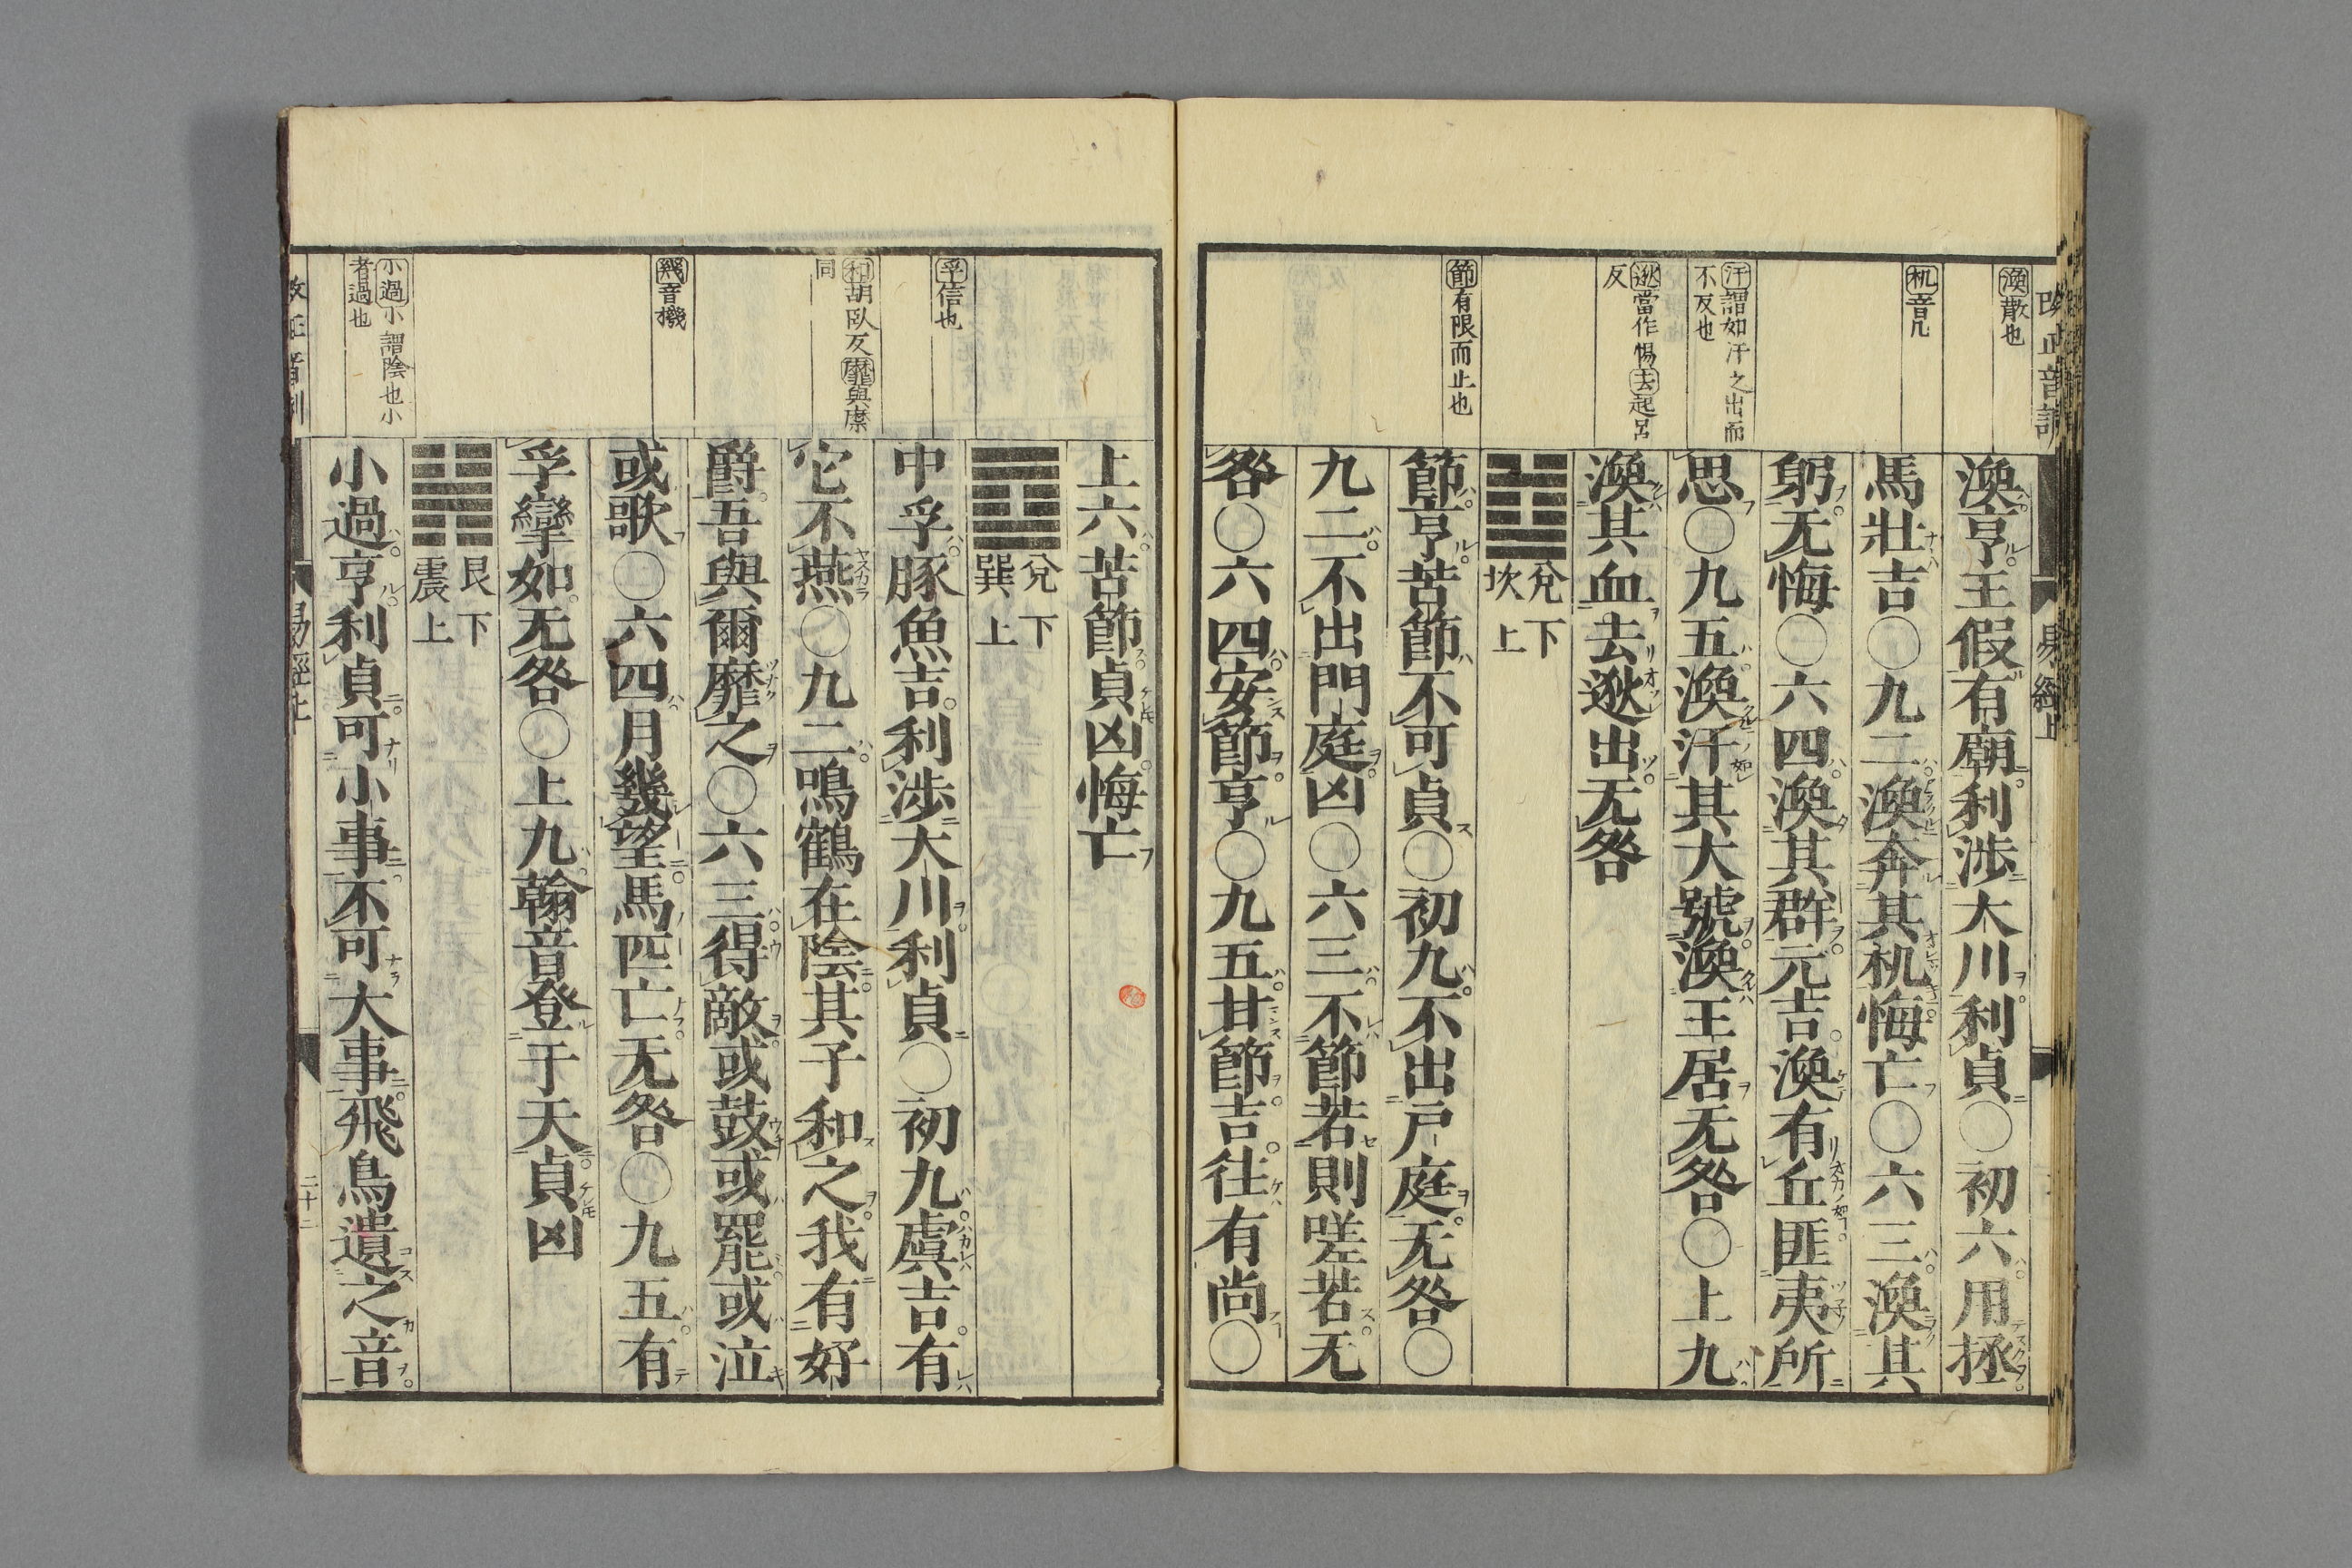 渙散也
机音几
汗謂如汗之出而
不反也
逖當作惕去起呂
反
節有限而止也
渙亨王假有廟利渉大川利貞○初六用拯
馬壯吉○九二渙奔其机悔亡○六三渙其
躬无悔○六四渙其群元吉渙有丘匪夷所
思○九五渙汗其大號渙王居无咎○上九
渙其血去逖出无咎
兌下
坎上
節亨苦節不可貞○初九不出戸庭无咎○
九二不出門庭凶○六三不節若則嗟若无
咎○六四安節亨○九五甘節吉往有尚○
孚信也
和胡臥反靡與縻
同
幾音機
小過小謂陰也小
者過也
上六苦節貞凶悔亡
兌下
巽上
中孚豚魚吉利渉大川利貞○初九虞吉有
它不燕○九二鳴鶴在陰其子和之我有好
爵吾與爾靡之○六三得敵或鼓或罷或泣
或歌○六四月幾望馬匹亡无咎○九五有
孚攣如无咎○上九翰音登于天貞凶
艮下
震上
小過亨利貞可小事不可大事飛鳥遺之音
易經上
二十二